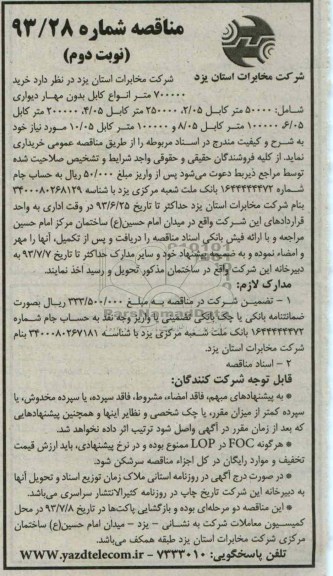 مناقصه شماره ۹۳/۲۸
(نوبت دوم)
شرکت مخابرات استان یزد
شرکت مخابرات استان یزد در نظر دارد خرید
۷۰۰۰۰۰ متر انواع کابل بدون مهار دیواری
شامل: ۵۰۰۰۰ متر کابل ۲/۰۵، ۲۵۰۰۰۰ متر کابل ۴/۰۵، ۲۰۰۰۰۰ متر کابل
۶/۰۵، ۱۰۰۰۰۰ متر کابل ۸/۰۵ و ۱۰۰۰۰۰ متر کابل ۱۰/۰۵ مورد نیاز خود
به شرح و کیفیت مندرج در اسناد مربوطه را از طریق مناقصه عمومی خریداری
نماید. از کلیه فروشندگان حقیقی و حقوقی واجد شرایط و تشخیص صلاحیت شده
توسط مراجع ذیربط دعوت می‌شود پس از واریز مبلغ ۵۰/۰۰۰ ریال به حساب جام
شماره ۱۶۴۴۴۴۴۴۷۲ بانک ملت شعبه مرکزی یزد با شناسه ۳۴۰۰۰۸۰۲۶۸۱۲۹
بنام شرکت مخابرات استان یزد حداکثر تا تاریخ ۹۳/۶/۲۵ در وقت اداری به واحد
قراردادهای این شرکت واقع در میدان امام حسین(ع) ساختمان مرکز امام حسین
مراجعه و با ارائه فیش بانکی اسناد مناقصه را دریافت و پس از تکمیل، آنها را مهر
و امضاء نموده و به ضمیمه پیشنهاد خود و سایر مدارک حداکثر تا تاریخ ۹۳/۷/۷ به
دبیرخانه این شرکت واقع در ساختمان مذکور تحویل و رسید اخذ نمایند.
مدارک لازم:
۱ - تضمین شرکت در مناقصه به مبلغ ۳۳۳/۵۰۰/۰۰۰ ریال بصورت
ضمانتنامه بانکی یا چک بانکی تضمینی یا واریز وجه نقد به حساب جام شماره
۱۶۴۴۴۴۴۴۷۲ بانک ملت شعبه مرکزی یزد با شناسه ۳۴۰۰۰۸۰۲۶۷۱۸۱ بنام
شرکت مخابرات استان یزد.
۲ - اسناد مناقصه
قابل توجه شرکت کنندگان:
● به پیشنهادهای مبهم، فاقد امضاء، مشروط، فاقد سپرده، یا سپرده مخدوش، یا
سپرده کمتر از میزان مقرر، یا چک شخصی و نظایر اینها و همچنین پیشنهادهایی
که بعد از زمان مقرر در آگهی واصل شود ترتیب اثر داده نخواهد شد.
● هرگونه FOC در LOP ممنوع بوده و در نرخ پیشنهادی، باید ارزش قیمت
تخفیف و موارد رایگان در کل اجزاء مناقصه سرشکن شود.
● در صورت درج آگهی در روزنامه استانی ملاک زمان توزیع اسناد و تحویل آنها
به دبیرخانه این شرکت تاریخ چاپ در روزنامه کثیرالانتشار سراسری می‌باشد.
● این مناقصه دو مرحله‌ای بوده و بازگشایی پاکت‌ها در تاریخ ۹۳/۷/۸ در محل
کمیسیون معاملات شرکت به نشانی - یزد - میدان امام حسین(ع) ساختمان
مرکزی شرکت مخابرات استان یزد طبقه همکف می‌باشد.
تلفن پاسخگویی: ۷۲۳۳۰۱۰ - WWW.yazdtelecom.ir